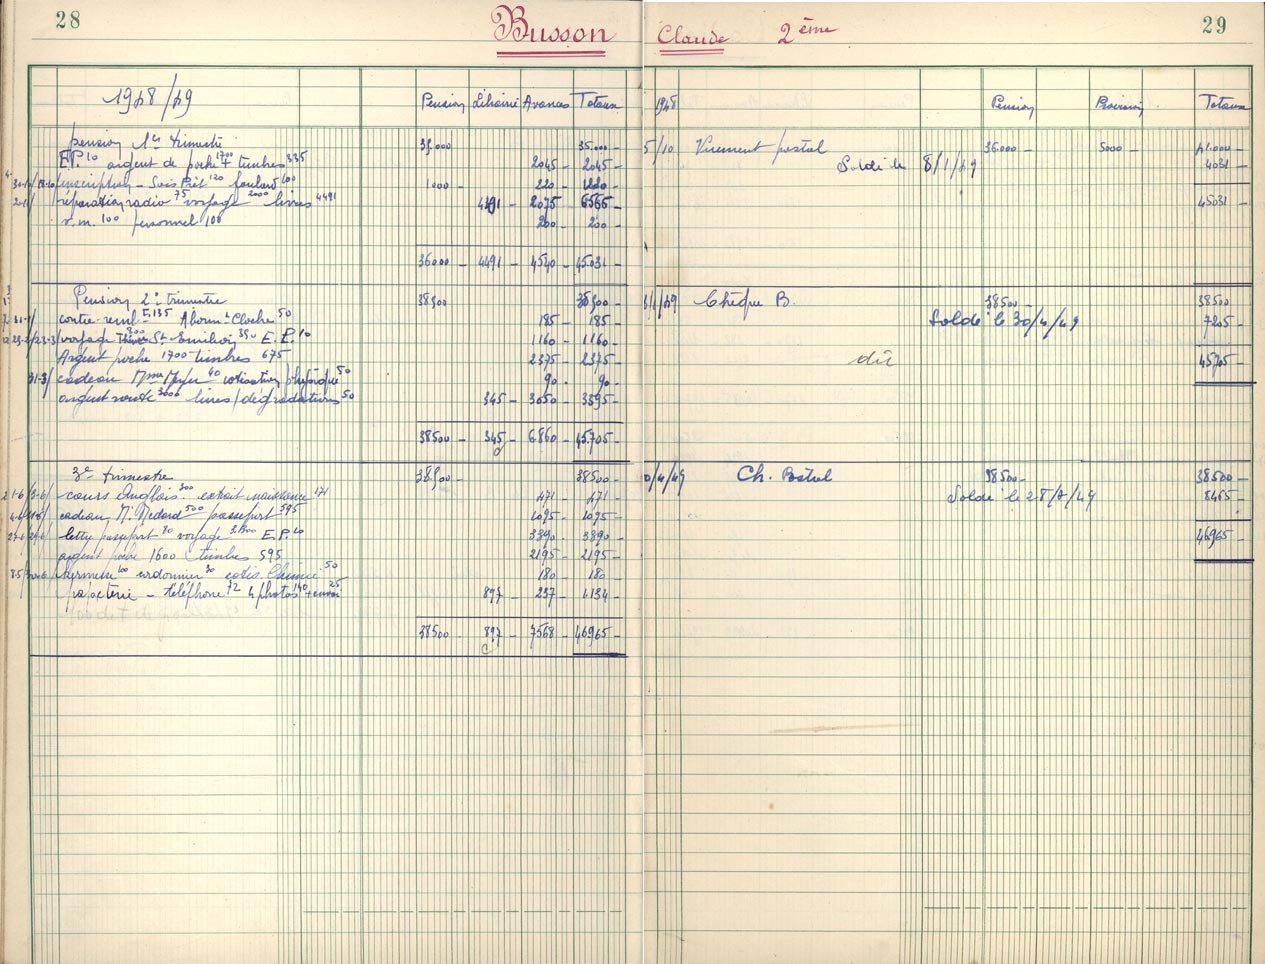 28
Busson
1948/49
Pension Librairie Avances Totaux
pension 1er trimestre 35.000 35.000 —
E.P. 10 argent de poche 1700 + timbres 335 2045 — 2045 —
inscription — Sois Prêt 120 foulard 100 1000 — 220 — 1220 —
réparation radio 75 voyage 2000 livres 4491 4491 — 2075 — 6566 —
100 personnel 100 200 — 200 —
36000 — 4491 — 4540 — 45.031 —
Pension 2e trimestre 38500 38500 —
contre-remb t 135 Abonnt Cloche 50 185 — 185 —
voyage 800 St-Emilion 350 E.P. 10 1160 — 1160 —
Argent poche 1700 timbres 675 2375 — 2375 —
31-3/ cadeau 40 cotisation physique 50 90 — 90 —
argent route 3000 livres/dégradations 50 345 — 3050 — 3395 —
38500 — 345 — 6860 — 45.705 —
3e trimestre 38500 38500 —
cours Anglais 300 extrait naissance 171 471 — 471 —
cadeau M. Médard 500 passeport 595 1095 — 1095 —
lettre passeport 80 voyage E.P. 10
argent poche 1600 timbres 595 2195 — 2195 —
kermesse cordonnier 30 cotis. Chimie 50 180 — 180 —
papeterie — téléphone 72 4 photos 140 + envoi 25 897 — 237 — 1134 —
38500 — 897 — 7568 — 46965 —
Claude 2ème
29
1948 Pension Provision Totaux
5/10 Virement postal 36.000 — 5000 — 41.000 —
Solde le 8/1/49 4031 —
45031 —
/1/49 Chèque B. 38500 — 38500 —
Solde le 30/4/49 7205 —
dû 45705 —
/4/49 Ch. Postal 38500 — 38500 —
Solde le 28/ /49 8465 —
46965 —